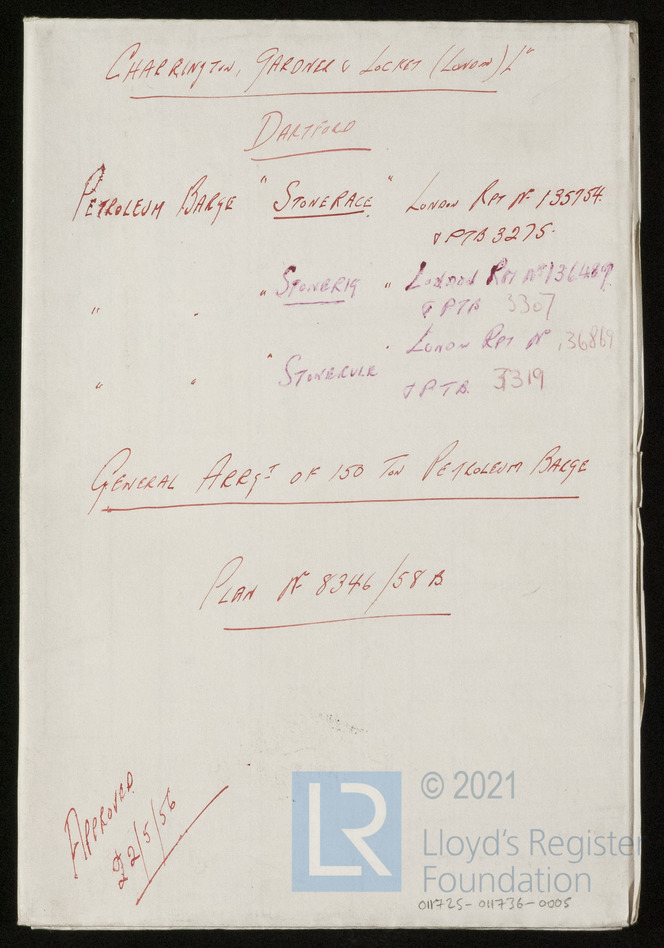 CHARRINGTON, GARDNER & LOCKET (LONDON) Lᵀᴰ
DARTFORD
PETROLEUM BARGE "STONERACE" LONDON RPT Nº 135754.
& PTB 3275.
" " "STONERIG" LONDON RPT Nº 136489.
& PTB 3307
LONDON RPT Nº 136869
" " "STONERULE" & PTB. 3319
GENERAL ARRGT OF 150 TON PETROLEUM BARGE
PLAN Nº 8346/58B
APPROVED
22/5/56
LR
© 2021
Lloyd's Register
Foundation
011725-011736-0005